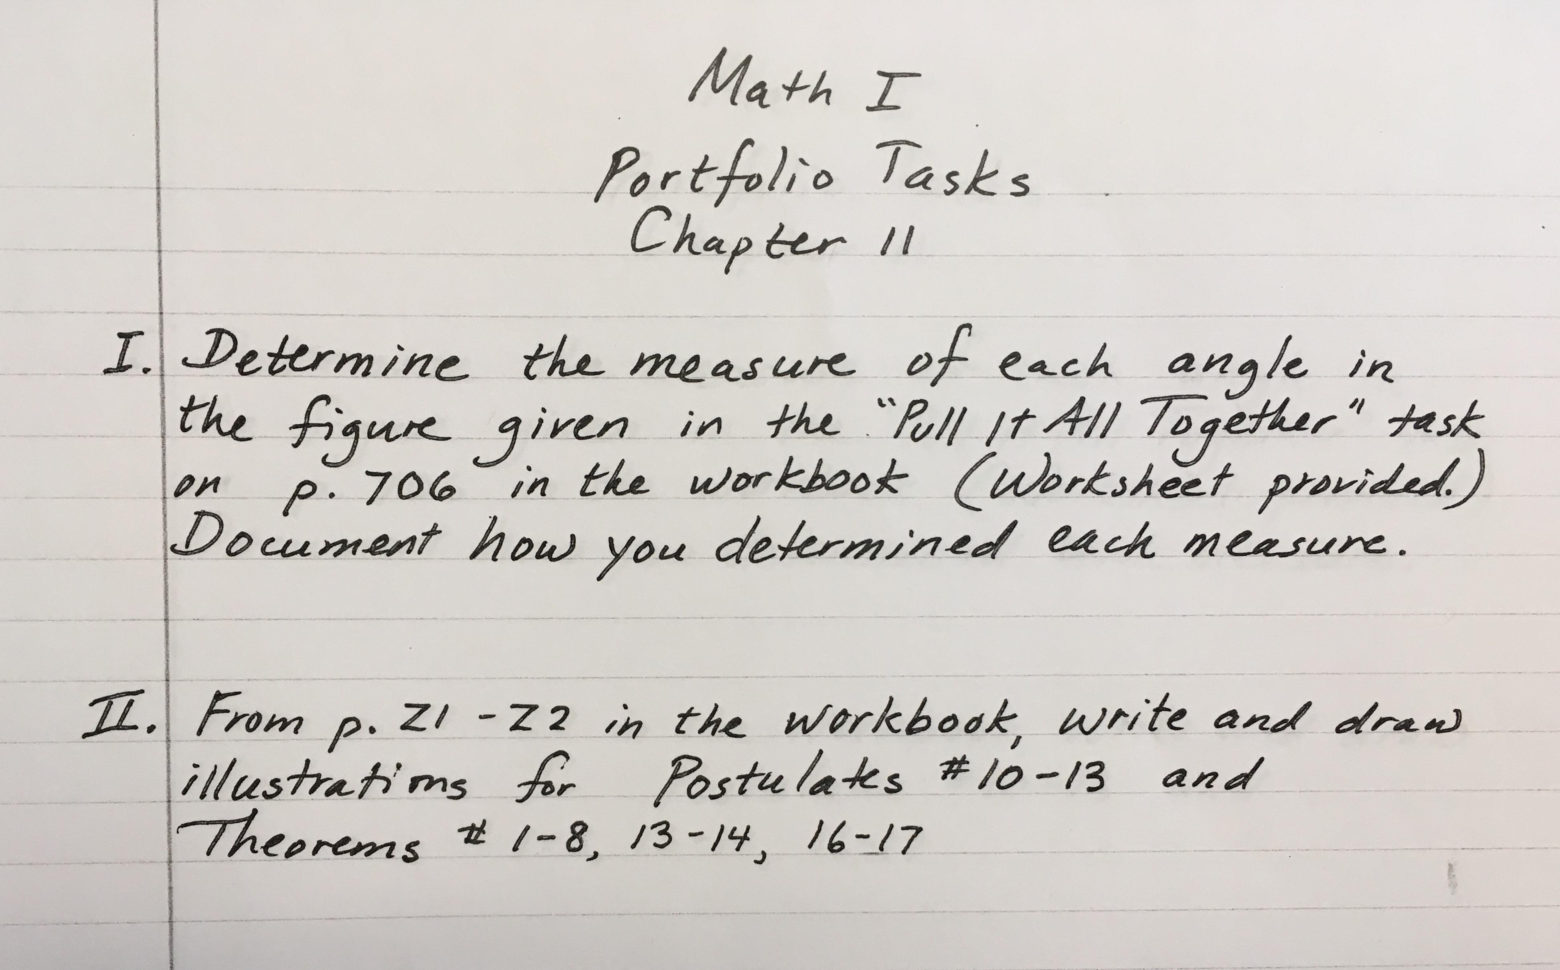 Math I
Portfolio Tasks
Chapter 11
I. Determine the measure of each angle in
the figure given in the "Pull It All Together" task
on p. 706 in the workbook (Worksheet provided.)
Document how you determined each measure.
II. From p. Z1 - Z2 in the workbook, write and draw
illustrations for Postulates #10-13 and
Theorems # 1-8, 13-14, 16-17